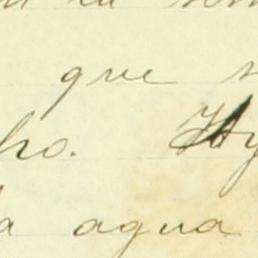 que s
ho. Hy
a agua